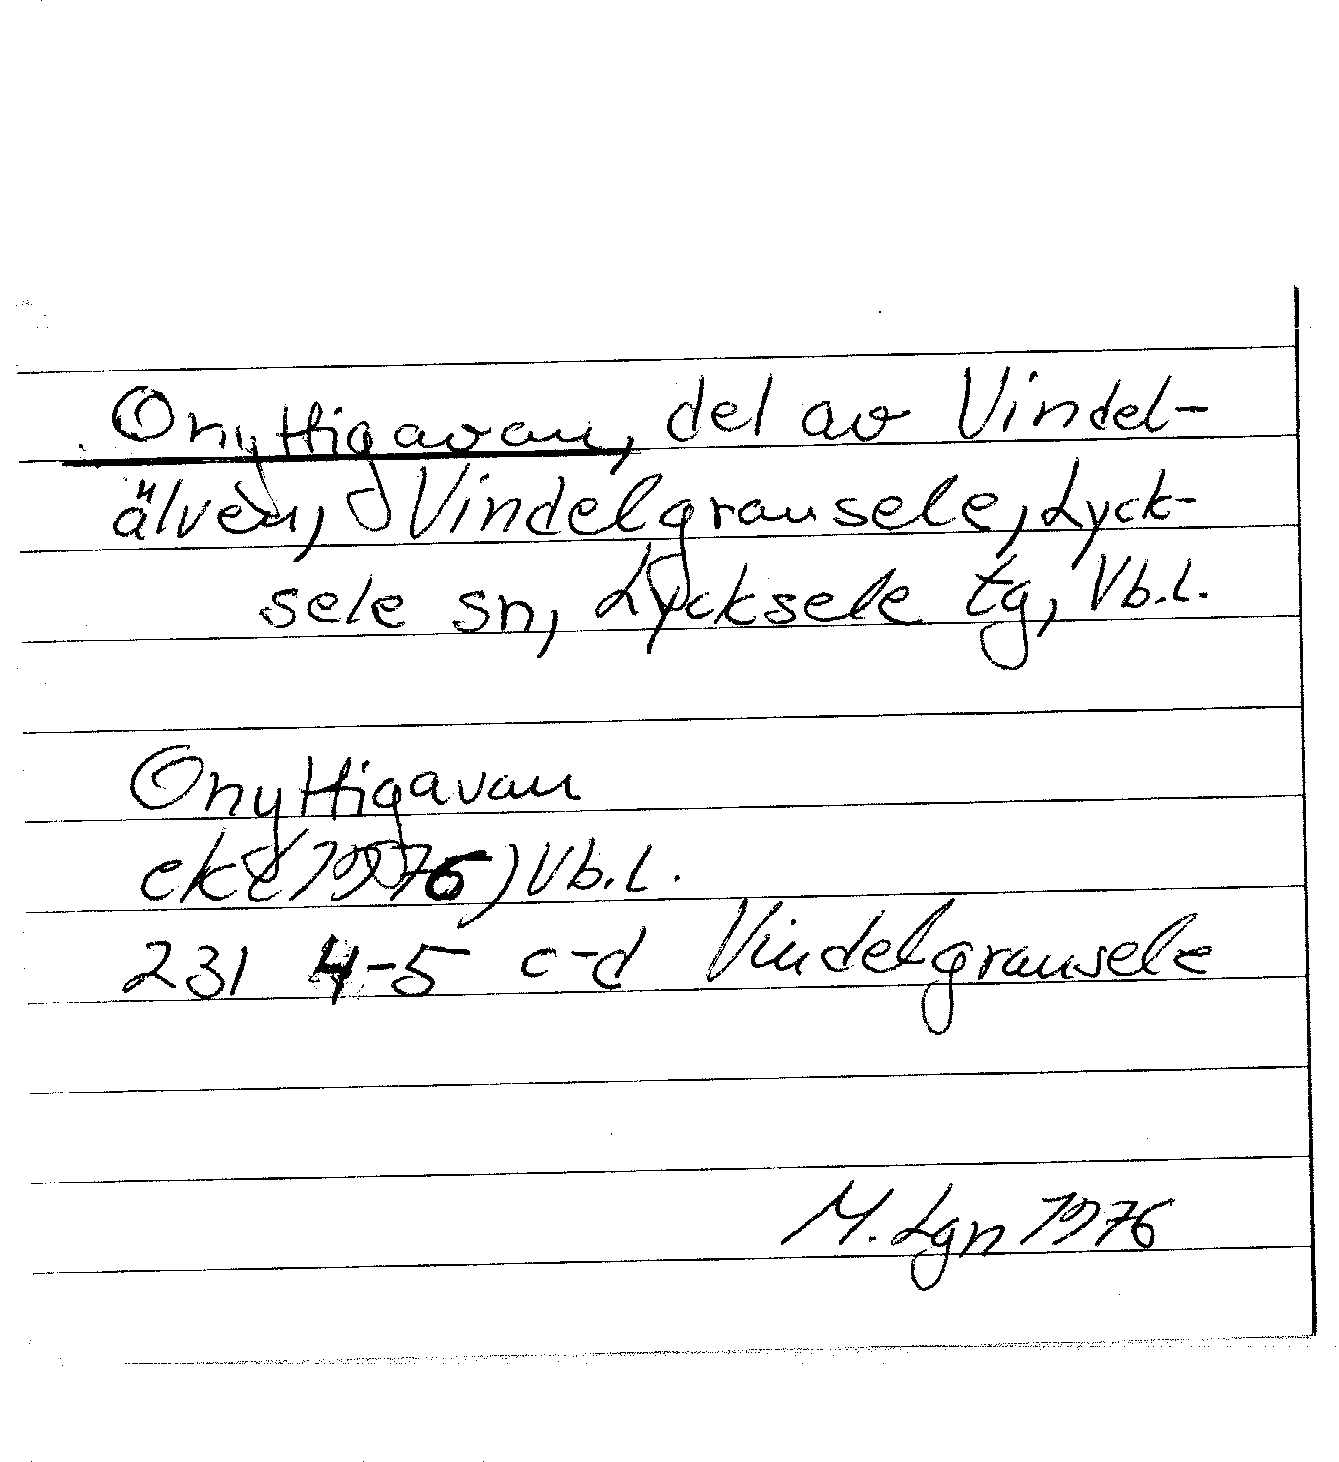 Onyttigavan, del av Vindel-
älven, Vindelgransele, Lyck-
sele sn, Lycksele tg, Vb.l.
Onyttigavan
ek (1976) Vb.l.
231 4-5 c-d Vindelgransele
M. Lgn 1976